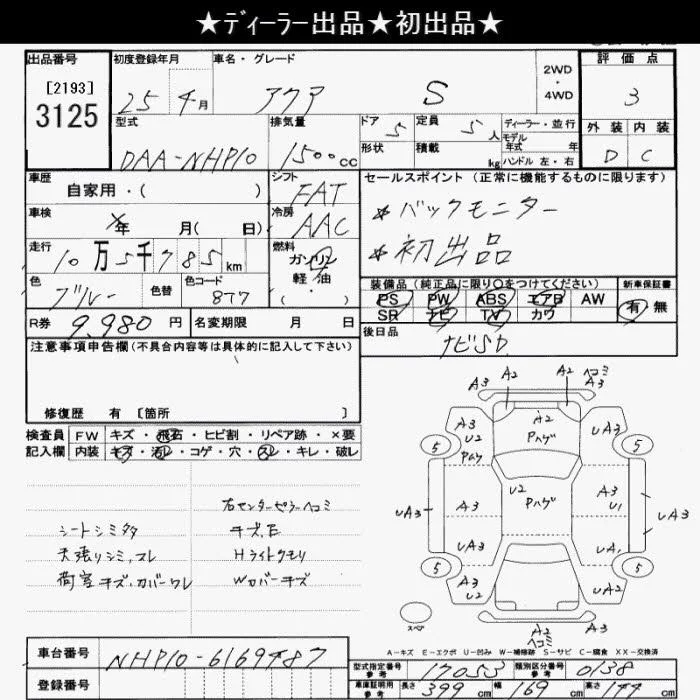 ★ディーラー出品★初出品★
出品番号
[2193]
3125
初度登録年月
25 4月
車名・グレード
アクア S
2WD
・
4WD
評価点
3
外装 内装
D C
型式
DAA-NHP10
排気量
1500cc
ドア 5
定員 5人
形状
積載 kg
ディーラー・並行
モデル
年式 年
ハンドル 左・右
車歴
自家用・( )
シフト
FAT
セールスポイント(正常に機能するものに限ります)
*バックモニター
*初出品
車検
年 月( 日)
冷房
AAC
走行
10万5千785km
燃料
ガソリン
軽・油
( ・ )
色
ブルー
色替
色コード
8T7
装備品(純正品に限り○をつけてください)
PS PW ABS エアB AW
SR ナビ TV カワ
新車保証書
有 無
R券 9,980円
名変期限 月 日
後日品
ナビSD.
注意事項申告欄(不具合内容等は具体的に記入して下さい)
修復歴 有 [箇所 ]
検査員
記入欄
FW キズ・飛石・ヒビ割・リペア跡・×要
内装 キズ・汚レ・コゲ・穴・スレ・キレ・破レ
右センターピラーヘコミ
シートシミタタ
キズ、E
天張りシミ、スレ
Hライトクモリ
荷室キズ・カバーワレ
Wカバーキズ
A3 A2 A2 ヘコミ
A3
A3 A2 UA3
U2 Pハゲ
Pハゲ
5 5
U2 Pハゲ
UA3 A3 A3 U1 UA3
UA3 UA1
5 5
A3 A2
U2 UA3
スペア
A2 A3
ヘコミ
A−キズ E−エクボ U−凹み W−補修跡 S−サビ C−腐食 XX−交換済
車台番号
NHP10-6169487
登録番号
型式指定番号
参考
17053
類別区分番号
参考
0138
車庫証明用
参考
長さ 399cm
幅 169cm
高さ 144cm